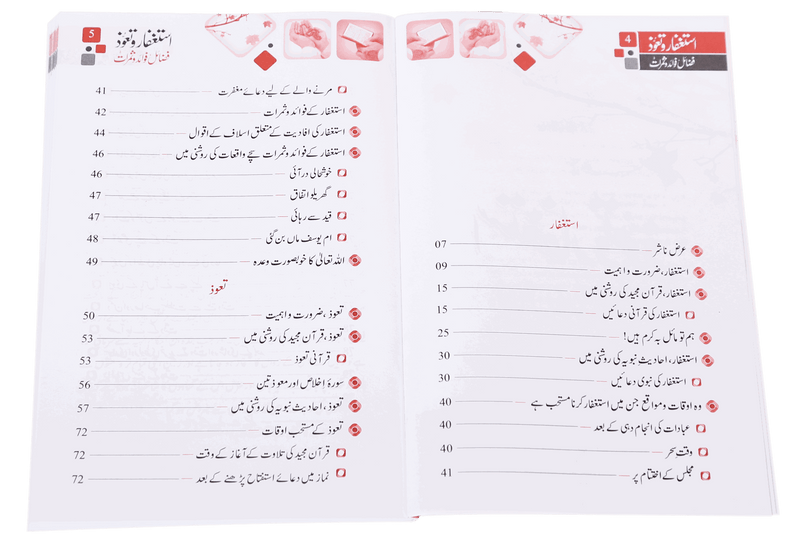 4
استغفار و تعوّذ
فضائل فوائد و ثمرات
استغفار
عرض ناشر 07
استغفار، ضرورت و اہمیت 09
استغفار، قرآن مجید کی روشنی میں 15
استغفار کی قرآنی دعائیں 15
ہم تو مائل بہ کرم ہیں! 25
استغفار، احادیث نبویہ کی روشنی میں 30
استغفار کی نبوی دعائیں 30
وہ اوقات و مواقع جن میں استغفار کرنا مستحب ہے 40
عبادات کی انجام دہی کے بعد 40
وقت سحر 40
مجلس کے اختتام پر 41
5
استغفار و تعوّذ
فضائل فوائد و ثمرات
مرنے والے کے لیے دعائے مغفرت 41
استغفار کے فوائد و ثمرات 42
استغفار کی افادیت کے متعلق اسلاف کے اقوال 44
استغفار کے فوائد و ثمرات سچے واقعات کی روشنی میں 46
خوشحالی در آئی 46
گھریلو اتفاق 47
قید سے رہائی 47
ام یوسف ماں بن گئی 48
اللہ تعالیٰ کا خوبصورت وعدہ 49
تعوذ
تعوذ، ضرورت و اہمیت 50
تعوذ، قرآن مجید کی روشنی میں 53
قرآنی تعوذ 53
سورۂ اخلاص اور معوذتین 56
تعوذ، احادیث نبویہ کی روشنی میں 57
تعوذ کے مستحب اوقات 72
قرآن مجید کی تلاوت کے آغاز کے وقت 72
نماز میں دعائے استفتاح پڑھنے کے بعد 72